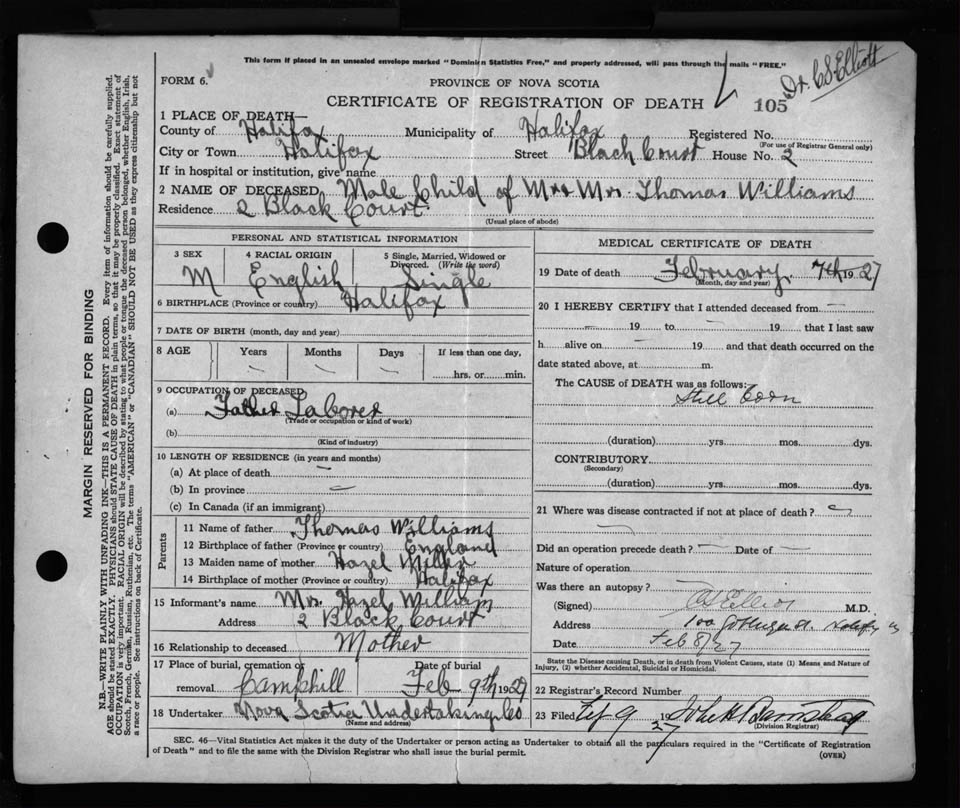 This form if placed in an unsealed envelope marked "Dominion Statistics Free," and properly addressed, will pass through the mails "FREE."
Dr. C S Elliott
FORM 6.
PROVINCE OF NOVA SCOTIA
CERTIFICATE OF REGISTRATION OF DEATH
105
1 PLACE OF DEATH—
County of Halifax Municipality of Halifax Registered No.
(For use of Registrar General only)
City or Town Halifax Street Black Court House No. 2
If in hospital or institution, give name
2 NAME OF DECEASED Male Child of Mr & Mrs. Thomas Williams
Residence 2 Black Court
(Usual place of abode)
PERSONAL AND STATISTICAL INFORMATION
3 SEX 4 RACIAL ORIGIN 5 Single, Married, Widowed or Divorced. (Write the word)
M English Single
6 BIRTHPLACE (Province or country) Halifax
7 DATE OF BIRTH (month, day and year)
8 AGE Years Months Days If less than one day,
hrs. or min.
9 OCCUPATION OF DECEASED
(a) Father Laborer
(Trade or occupation or kind of work)
(b)
(Kind of industry)
10 LENGTH OF RESIDENCE (in years and months)
(a) At place of death
(b) In province
(c) In Canada (if an immigrant)
Parents
11 Name of father Thomas Williams
12 Birthplace of father (Province or country) England
13 Maiden name of mother Hazel Miller
14 Birthplace of mother (Province or country) Halifax
15 Informant's name Mrs. Hazel William
Address 2 Black Court
16 Relationship to deceased Mother
17 Place of burial, cremation or removal Camphill Date of burial Feb 9th 1927
18 Undertaker Nova Scotia Undertaking Co
(Name and address)
MEDICAL CERTIFICATE OF DEATH
19 Date of death February 7th 1927
(Month, day and year)
20 I HEREBY CERTIFY that I attended deceased from
19 to 19 that I last saw
h alive on 19 and that death occurred on the
date stated above, at m.
The CAUSE of DEATH was as follows:
Still born
(duration) yrs. mos. dys.
CONTRIBUTORY
(Secondary)
(duration) yrs. mos. dys.
21 Where was disease contracted if not at place of death?
Did an operation precede death? Date of
Nature of operation
Was there an autopsy?
(Signed) C S Elliott M.D.
Address 100
Date Feb 8/27
State the Disease causing Death, or in death from Violent Causes, state (1) Means and Nature of
Injury, (2) whether Accidental, Suicidal or Homicidal.
22 Registrar's Record Number
23 Filed Feb 9 1927
(Division Registrar)
SEC. 46—Vital Statistics Act makes it the duty of the Undertaker or person acting as Undertaker to obtain all the particulars required in the "Certificate of Registration
of Death" and to file the same with the Division Registrar who shall issue the burial permit.
(OVER)
MARGIN RESERVED FOR BINDING
N.B.—WRITE PLAINLY WITH UNFADING INK—THIS IS A PERMANENT RECORD. Every item of information should be carefully supplied.
AGE should be stated EXACTLY. PHYSICIANS should STATE CAUSE OF DEATH in plain terms, so that it may be properly classified. Exact statement of
OCCUPATION is very important. RACIAL ORIGIN will be described by stating to what people or tongue the deceased person belonged, whether English, Irish,
Scotch, French, German, Russian, Ruthenian, etc. The terms "AMERICAN" or "CANADIAN" SHOULD NOT BE USED as they express citizenship but not
a race or people. See instructions on back of Certificate.